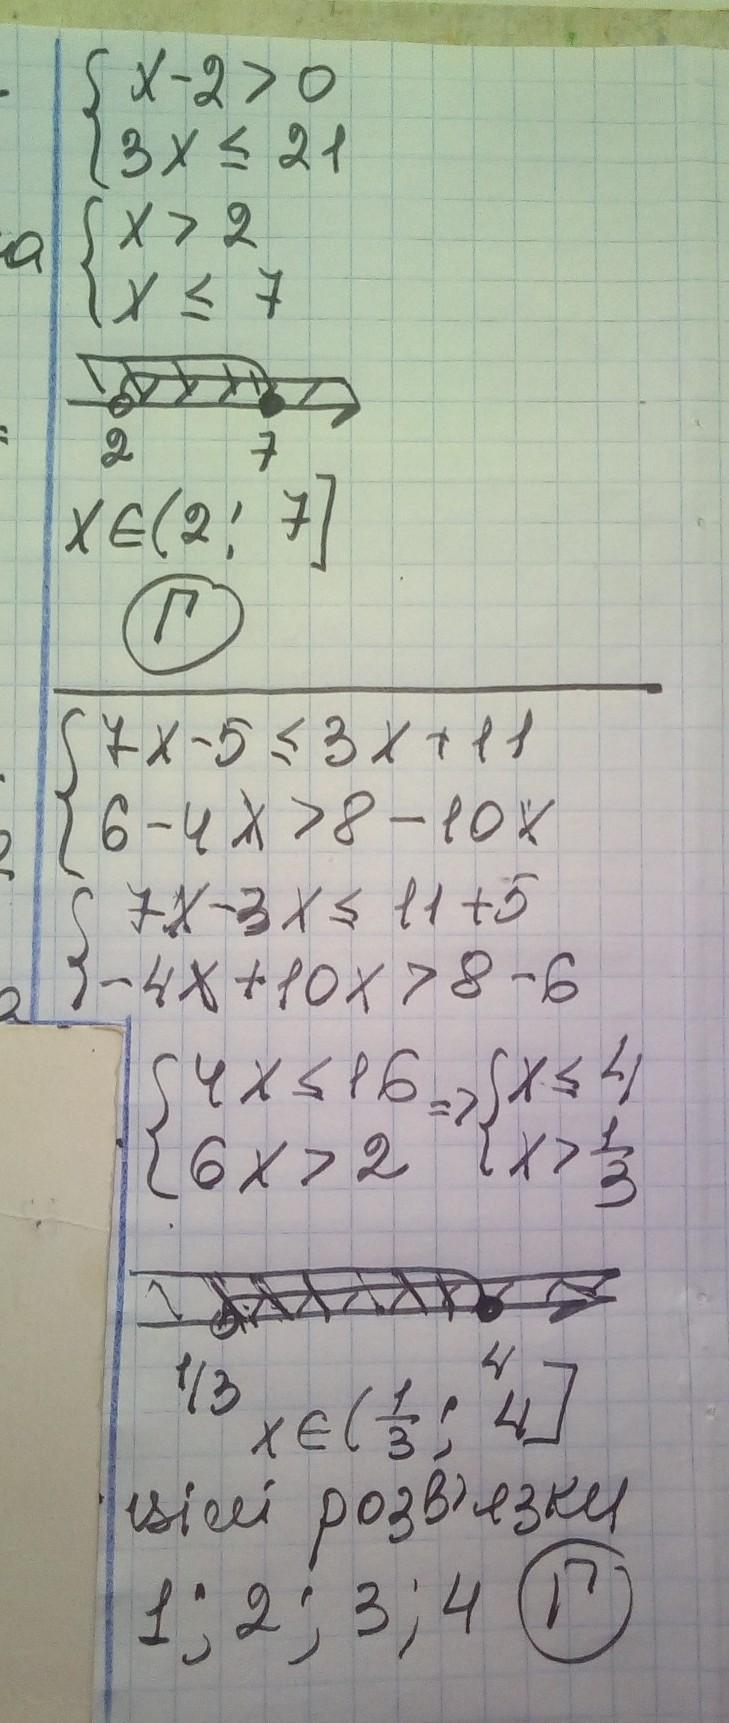 { x-2>0
3x ≤ 21
{ x > 2
x ≤ 7
2 7
x∈(2; 7]
Г
{ 7x-5≤3x+11
6-4x>8-10x
{ 7x-3x≤11+5
-4x+10x>8-6
{ 4x≤16 => { x≤4
6x>2 x>1/3
1/3 4
x∈(1/3; 4]
цілі розв'язки
1; 2; 3; 4 Г